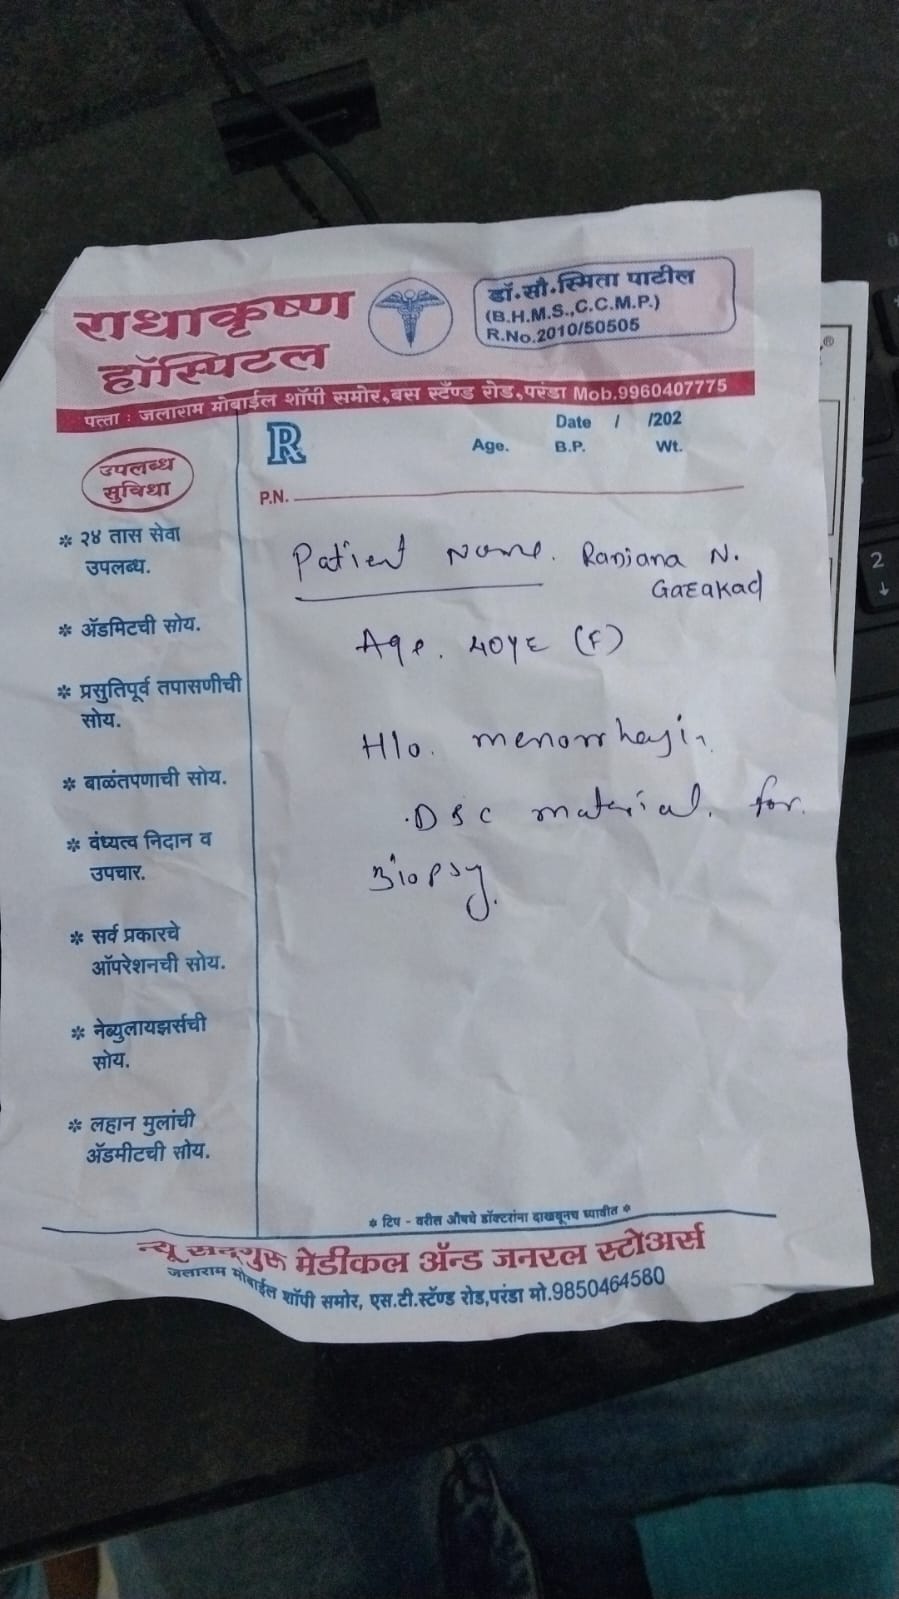 राधाकृष्ण
हॉस्पिटल
डॉ.सौ.स्मिता पाटील
(B.H.M.S.,C.C.M.P.)
R.No.2010/50505
पत्ता : जलाराम मोबाईल शॉपी समोर,बस स्टॅण्ड रोड,परंडा Mob.9960407775
R
Date / /202
Age. B.P. Wt.
P.N.
उपलब्ध
सुविधा
* २४ तास सेवा
उपलब्ध.
* ॲडमिटची सोय.
* प्रसुतिपूर्व तपासणीची
सोय.
* बाळंतपणाची सोय.
* वंध्यत्व निदान व
उपचार.
* सर्व प्रकारचे
ऑपरेशनची सोय.
* नेब्युलायझर्सची
सोय.
* लहान मुलांची
ॲडमीटची सोय.
Patient Name. Ranjana N.
Gaeakad
Age. 40yE (F)
H/o. menorrhagia
.D&C material. for.
Biopsy.
* टिप - वरील औषधे डॉक्टरांना दाखवूनच घ्यावीत *
न्यू सद्गुरु मेडीकल ॲन्ड जनरल स्टोअर्स
जलाराम मोबाईल शॉपी समोर, एस.टी.स्टॅण्ड रोड,परंडा मो.9850464580
2